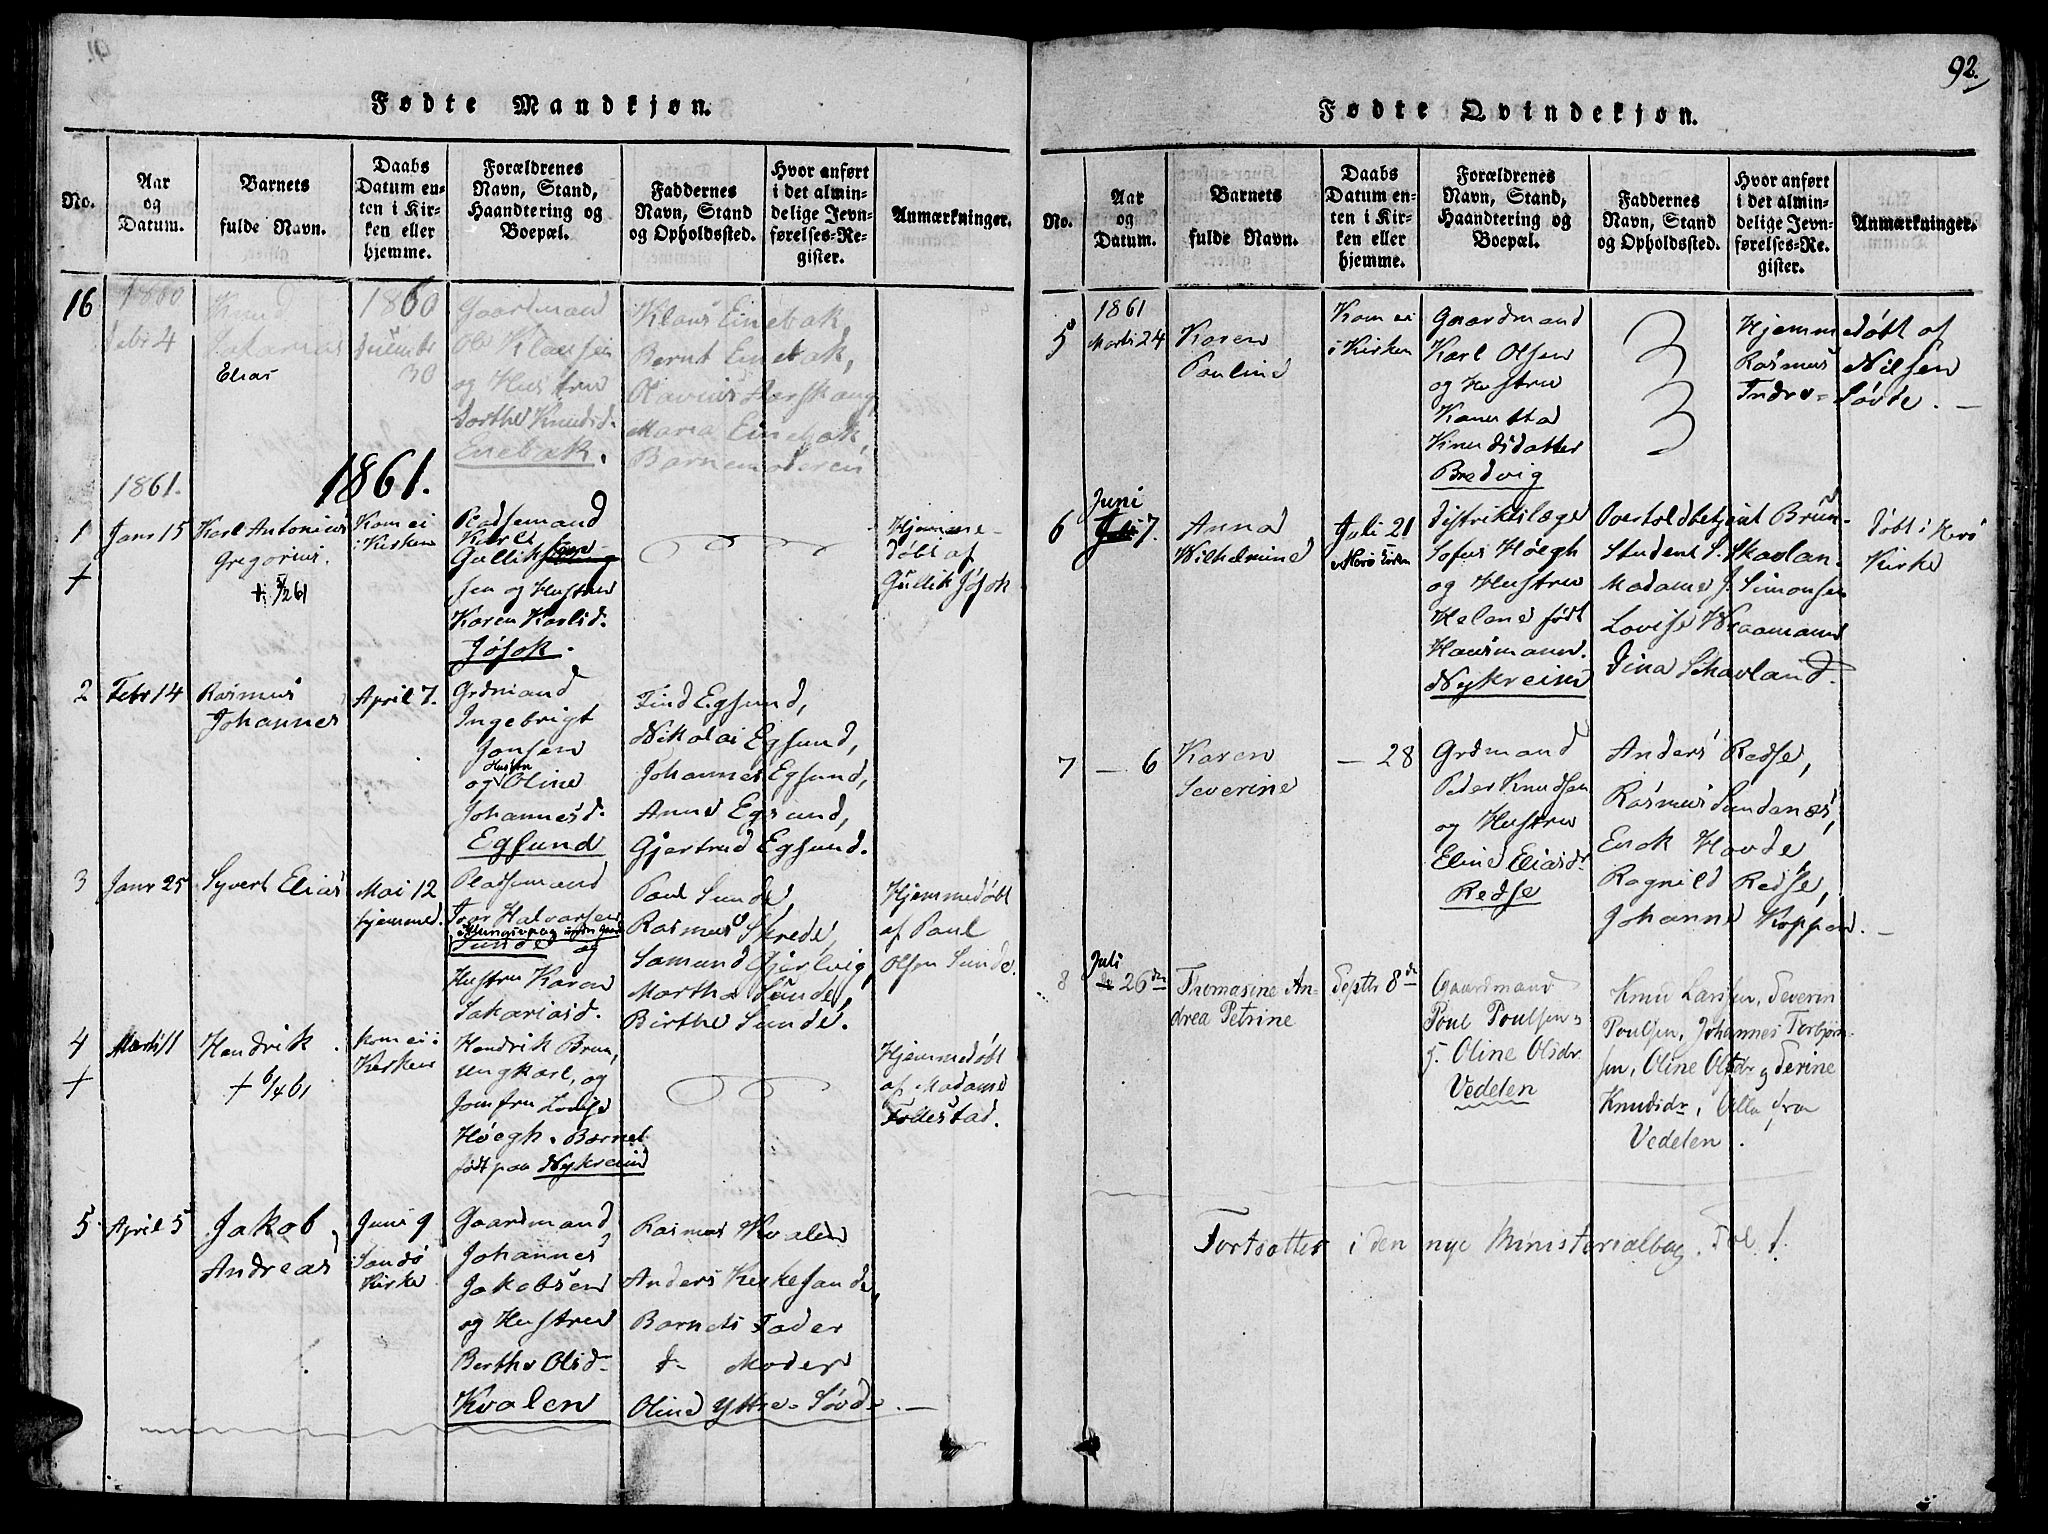 92.
Fødte Mandkjøn.
No.
Aar
og
Datum.
Barnets
fulde Navn.
Daabs
Datum en-
ten i Kir-
ken eller
hjemme.
Forældrenes
Navn, Stand,
Haandtering og
Boepæl.
Faddernes
Navn, Stand
og Opholdssted.
Hvor anført
i det almin-
delige Jevn-
førelses-Re-
gister.
Anmærkninger.
16
1860
Febr 4
Knud
Sakarias
Elias
1860
30
Gaardmand
Ole Klausen
og Hustru
Dorthe Knudsd.
Enebak.
Klaus Einebak,
Bernt Einebak,
Maria Einebak,
Barnemoderen
1861.
1861.
1
+
Janr 15
Karl Antonius
Gregorius.
Kom ei
i Kirken
Pladsemand
Karl
Gullik
sen og Hustru
Karen Karlsd.
Jøsok.
Hjemme-
døbt af
Gullik Jøsok
2
Febr 14
Rasmus
Johannes
April 7.
Grdmand
Ingebrigt
Jonsen
Hustru
og Oline
Johannesd.
Egsund
Find Egsund,
Nikolai Egsund,
Johannes Egsund,
Anne Egsund,
Gjertrud Egsund.
3
Janr 25
Syvert Elias
Mai 12
hjemme
Pladsemand
Iver Halvorsen
Sunde og
Hustru Karen
Sakariasd.
Paul Sunde,
Rasmus Skrede,
Samund Gjerlvig,
Martha Sunde,
Birthe Sunde.
Hjemmedøbt
af Paul
Olsen Sunde.
4
+
Marts 11
Hendrik
+ 6/4 61
Kom ei i
Kirken
Hendrik Brun,
ungkarl, og
Jomfru Lovise
Høegh. Barnet
født paa Nykreim
Hjemmedøbt
af Madame
Follestad.
5
April 5
Jakob
Andreas
Juni 9
Sandø
Kirke
Gaardmand
Johannes
Jakobsen
og Hustru
Berthe Olsd.
Kvalen
Rasmus Kvalen
Anders Kirkesande,
Barnets Fader
d- Moder
Oline Yttre-Søvde.
Fødte Qvindekjøn.
No.
Aar
og
Datum.
Barnets
fulde Navn.
Daabs
Datum en-
ten i Kir-
ken eller
hjemme.
Forældrenes
Navn, Stand,
Haandtering og
Boepæl.
Faddernes
Navn, Stand
og Opholdssted.
Hvor anført
i det almin-
delige Jevn-
førelses-Re-
gister.
Anmærkninger.
5
1861
Marts 24
Karen
Pauline
Kom ei
i Kirken
Gaardmand
Karl Olsen
og Hustru
Knudsdatter
Bredvig
Hjemmedøbt af
Rasmus Nilsen
Indre-Søvde.
6
Juni
7.
Anna
Wilhelmine
Juli 21
Distriktslæge
Sofus Høegh
og Hustru
Helene født
Hausmann.
Nykreim
Overtoldbetjent Brun-
Student S. Skavlan-
Madame J. Simonsen
Lovise
Dina Schavland.
døbt i Herø
Kirke
7
- 6
Karen
Severine
- 28
Grdmand
Peder Knudsen
og Hustru
Eline Eliasdr
Redse
Anders Redse,
Rasmus Sandenæs,
Enok Hovde
Ragnild Redse,
Johanne Koppen.
8
Juli
26de
Thomasine An-
drea Petrine
Septbr 8de
Gaardmand
Poul Poulsen
H. Oline Olsdr
Vedelen
Knud Larsen, Severin
Poulsen, Johannes Torbjørn-
sen, Oline Olsdr og Serine
Knudsdr, Alle fra
Vedelen.
Fortsættes i den nye Ministerialbog. Fol 1.